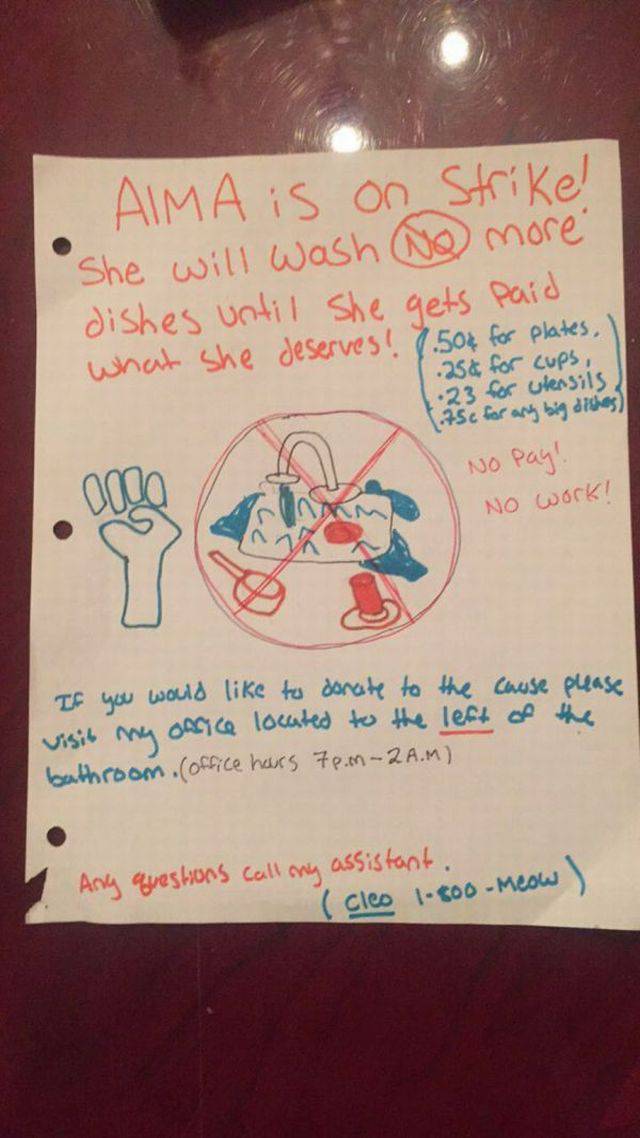 AIMA is on Strike!
She will wash NO more
dishes until She gets Paid
what she deserves!
(.50¢ for plates,
.25¢ for cups,
.23 for utensils
.75c for any big dishes)
No Pay!
No work!
If you would like to donate to the cause please
visit my office located to the left of the
bathroom. (office hours 7p.m-2A.M)
Any questions call my assistant.
(Cleo 1-800-Meow)